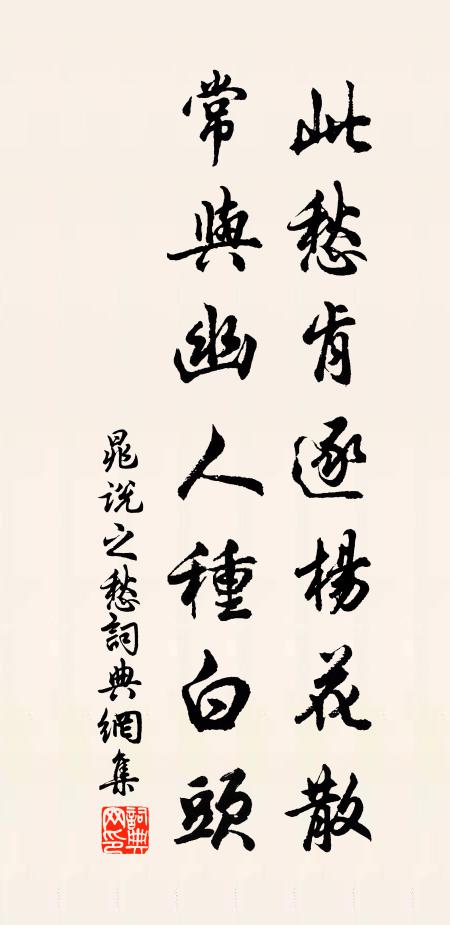 此愁肯逐楊花散
常與幽人種白頭
晁説之愁詞典網集
詞典網印